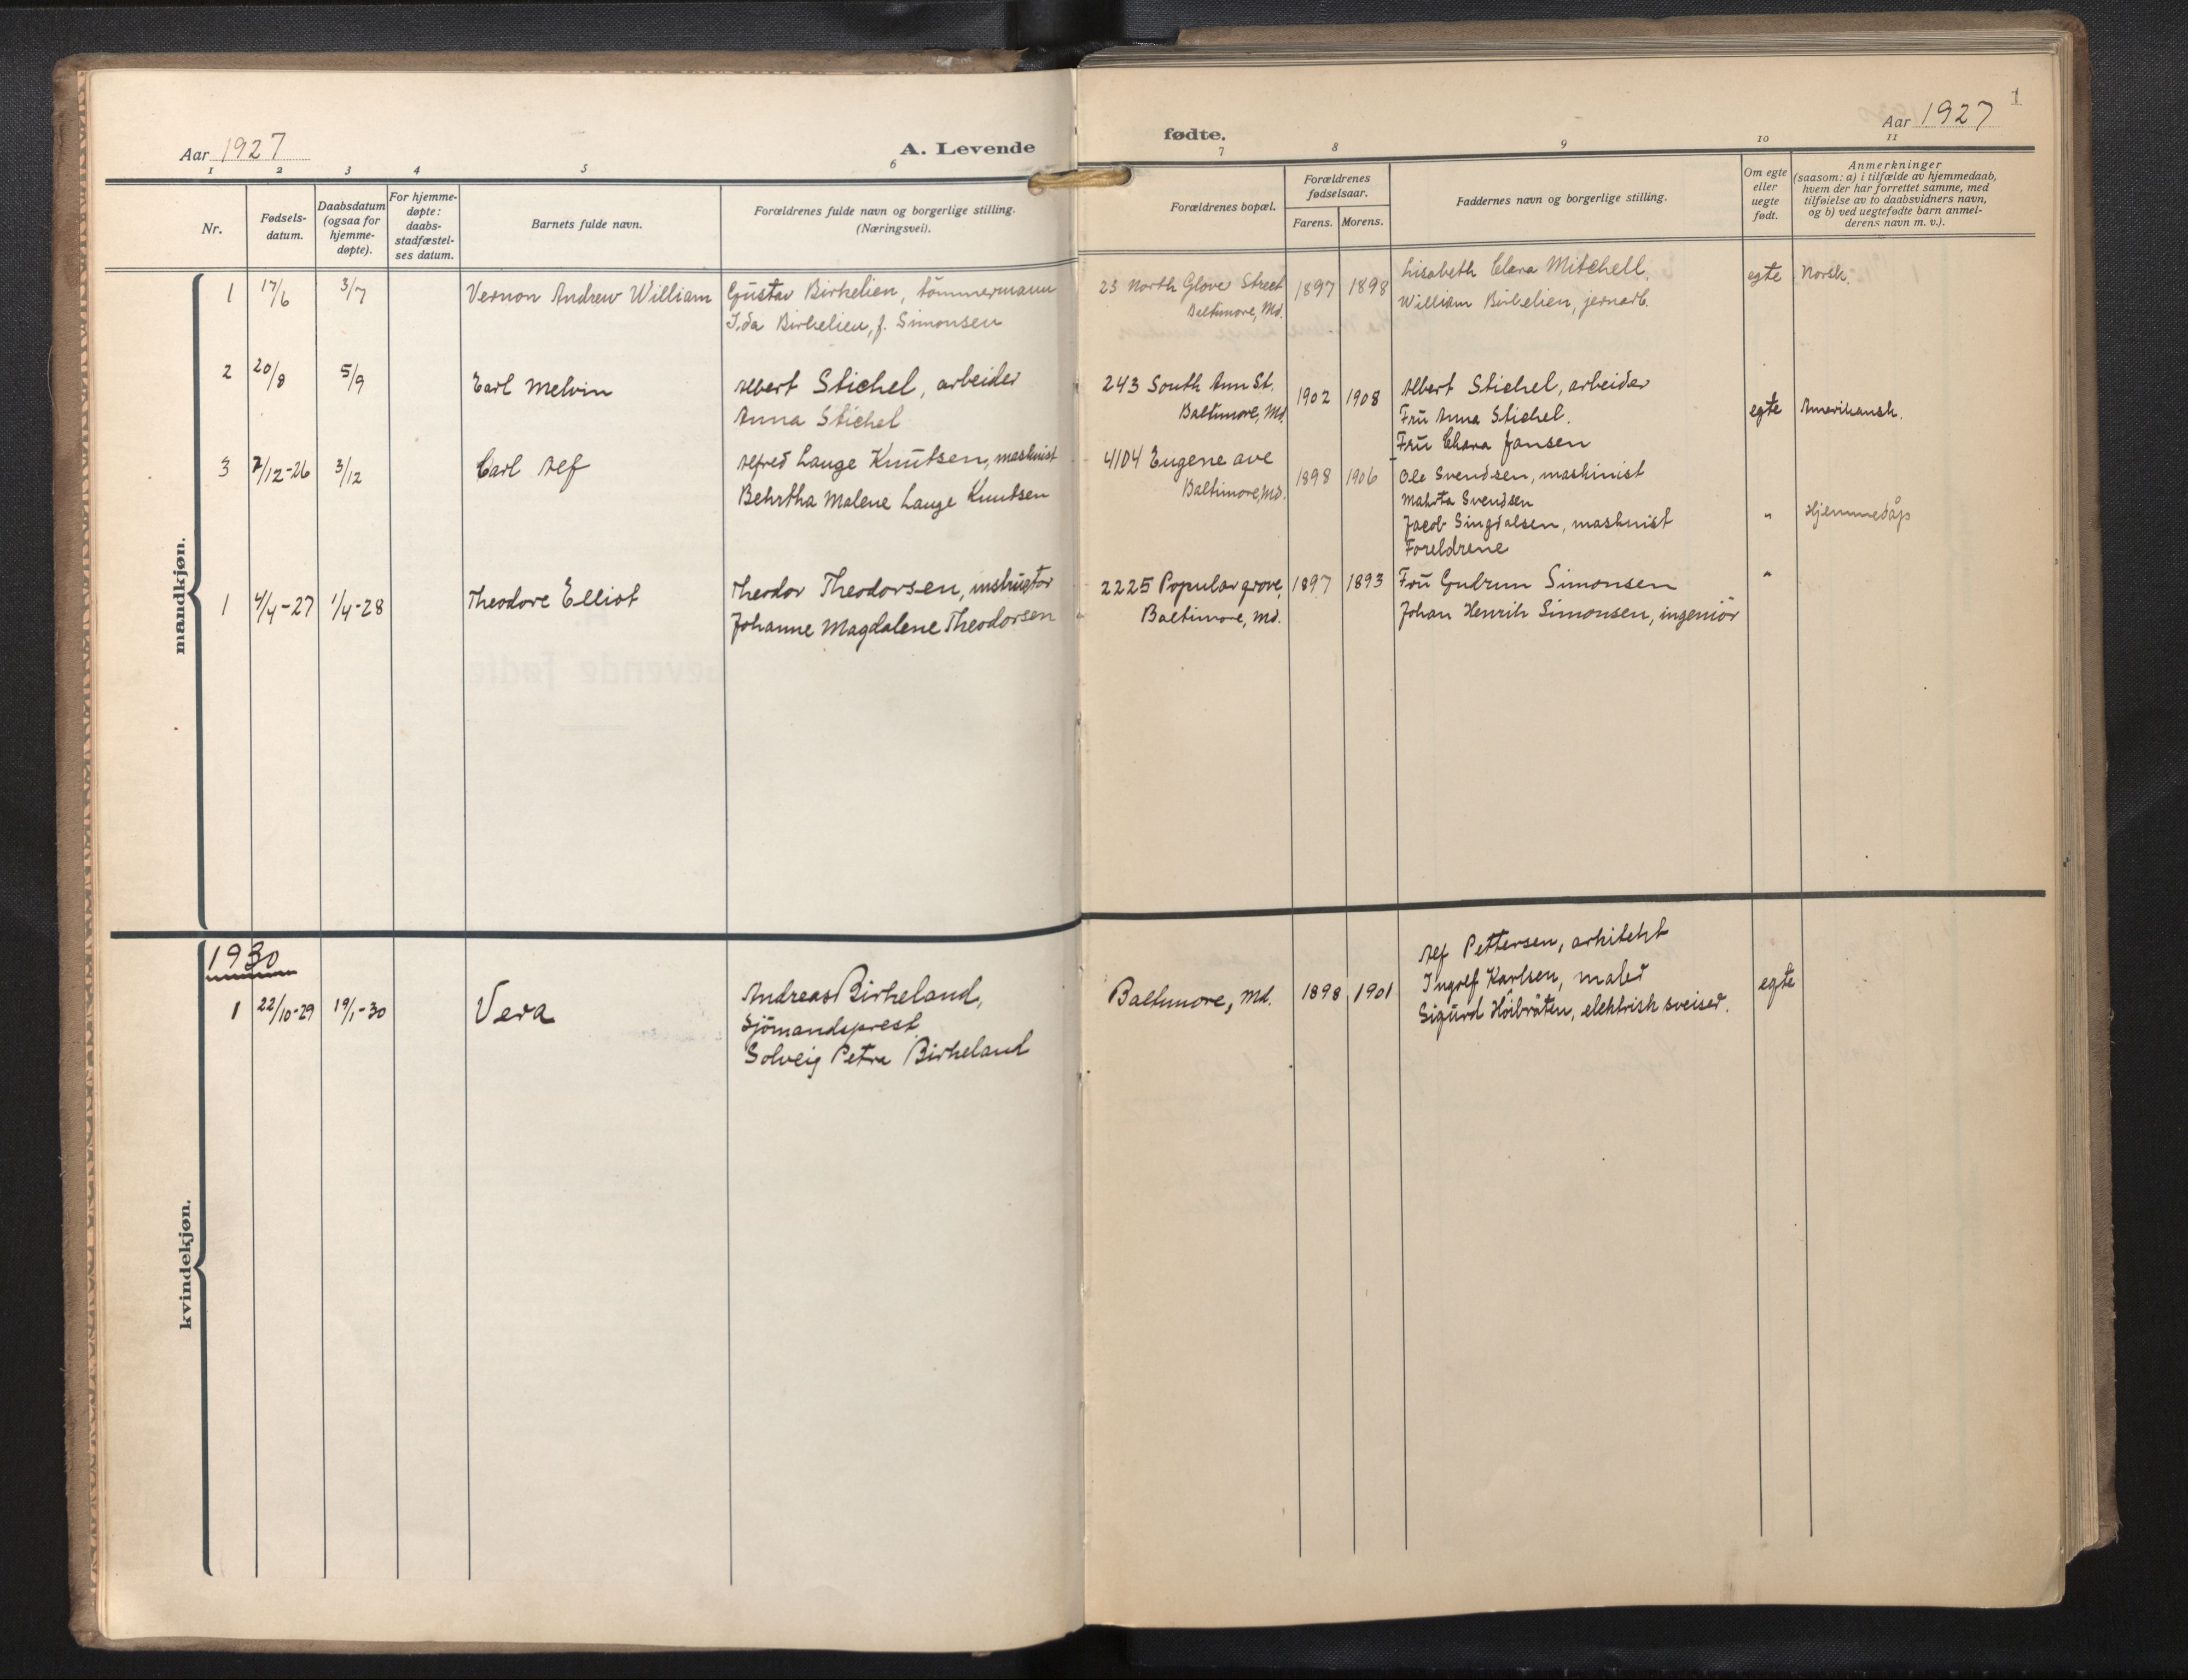 Aar 1927
A. Levende
1 2 3 4 5 6
Nr.
Fødsels-
datum.
Daabsdatum
(ogsaa for
hjemme-
døpte).
For hjemme-
døpte:
daabs-
stadfæstel-
ses datum.
Barnets fulde navn.
Forældrenes fulde navn og borgerlige stilling.
(Næringsvei).
mandkjøn.
1 17/6 3/7 Vernon Andrew William Gustav Birkelien, tömmermann
Ida Birkelien, f. Simonsen
2 20/8 5/9 Earl Melvin Albert Stichel, arbeider
Anna Stichel
3 7/12-26 3/12 Carl Alf Alfred Lauge Knutsen, maskinist
Behrtha Malene Lauge Knutsen
1 4/4-27 1/4-28 Theodore Elliot Theodor Theodorsen, instrugtör
Johanne Magdalene Theodorsen
kvindekjøn.
1930
1 22/10-29 19/1-30 Vera Andreas Birkeland,
Sjömandsprest
Solveig Petra Birkeland
1
fødte.
Aar 1927
7 8 9 10 11
Forældrenes bopæl.
Forældrenes
fødselsaar.
Farens. Morens.
Faddernes navn og borgerlige stilling.
Om egte
eller
uegte
født.
Anmerkninger
(saasom: a) i tilfælde av hjemmedaab,
hvem der har forrettet samme, med
tilføielse av to daabsvidners navn,
og b) ved uegtefødte barn anmel-
derens navn m. v.).
23 North Glove Street 1897 1898 Lisabeth Clara Mitchell. egte Norsk.
Baltimore, Md. William Birkelien, jernarb.
243 South Ann St. 1902 1908 Albert Stichel, arbeider
Baltimore, Md. Fru Anna Stichel. egte Amerikansk.
Fru Clara Jansen
4104 Eugene ave 1898 1906 Ole Svendsen, maskinist
Baltimore, Md. Mahrta Svendsen
Jacob Singdalsen, maskinist " Hjemmedåp
Foreldrene
2225 Popular grove, 1897 1893 Fru Gudrun Simonsen "
Baltimore, Md. Johan Henrik Simonsen, ingeniör
Alf Pettersen, arkitekt
Baltimore, Md. 1898 1901 Ingolf Karlsen, maler egte
Sigurd Höibråten, elektrisk sveiser.